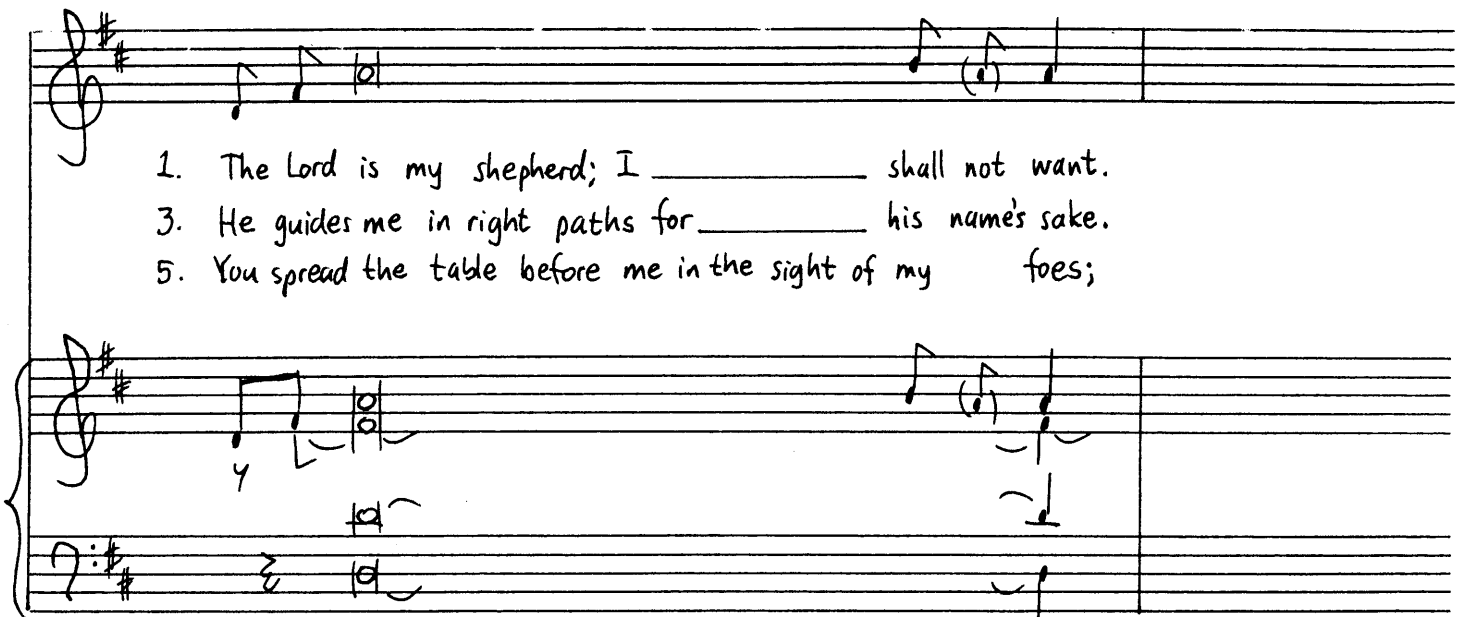 1. The Lord is my shepherd; I ___________ shall not want.
3. He guides me in right paths for_________ his name's sake.
5. You spread the table before me in the sight of my foes;